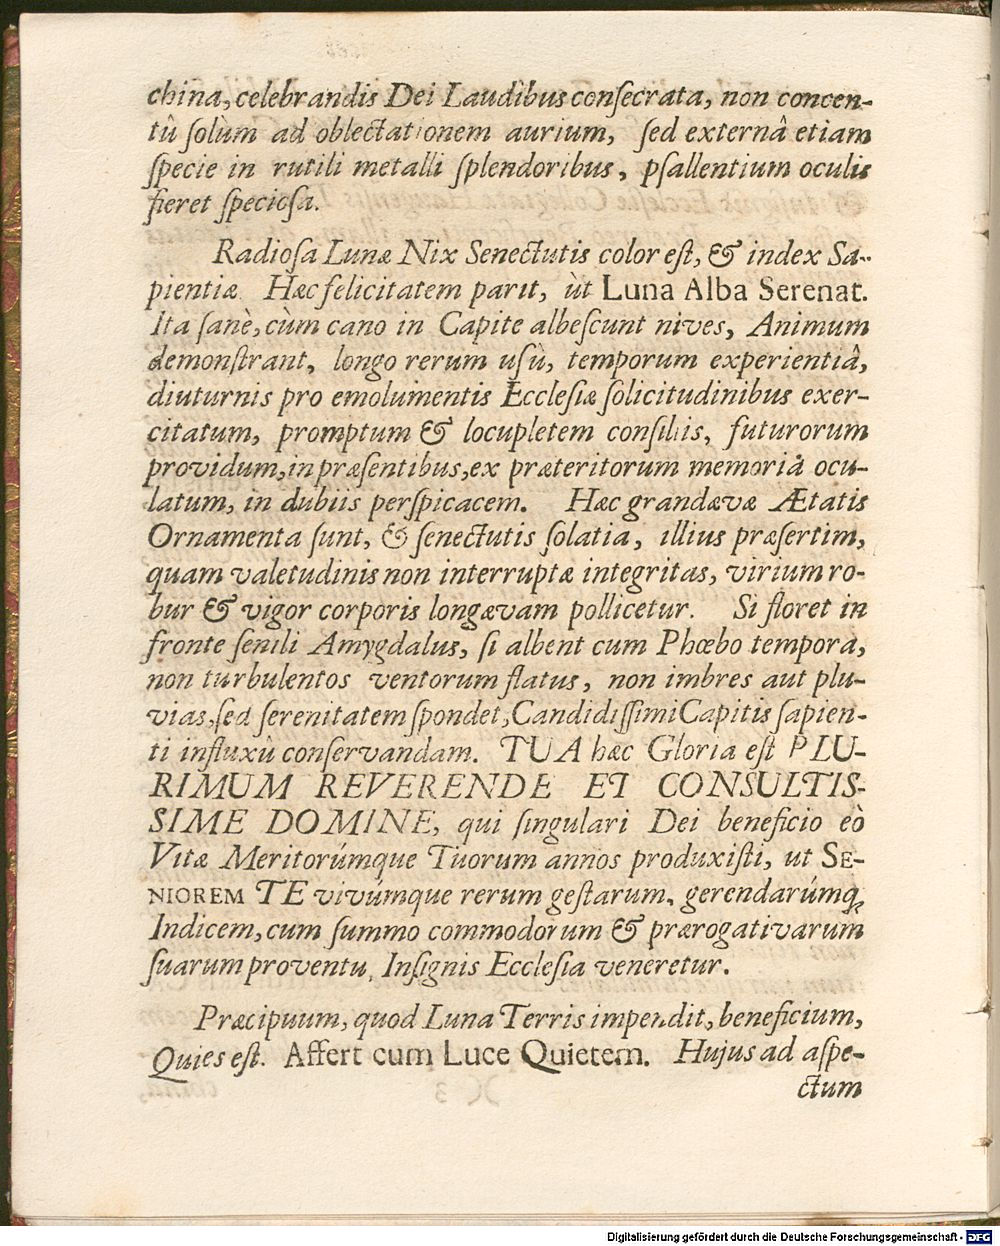 china, celebrandis Dei Laudibus consecrata, non concen-
tû solùm ad oblectationem aurium, sed externâ etiam
specie in rutili metalli splendoribus, psallentium oculis
fieret speciosa.
Radiosa Lunæ Nix Senectutis color est, & index Sa-
pientiæ Hæc felicitatem parit, ùt Luna Alba Serenat.
Ita sanè, cùm cano in Capite albescunt nives, Animum
demonstrant, longo rerum usù, temporum experientiâ,
diuturnis pro emolumentis Ecclesiæ solicitudinibus exer-
citatum, promptum & locupletem consiliis, futurorum
providum, in præsentibus, ex præteritorum memoriâ ocu-
latum, in dubiis perspicacem. Hæc grandævæ Ætatis
Ornamenta sunt, & senectutis solatia, illius præsertim,
quam valetudinis non interruptæ integritas, virium ro-
bur & vigor corporis longævam pollicetur. Si floret in
fronte senili Amygdalus, si albent cum Phœbo tempora,
non turbulentos ventorum flatus, non imbres aut plu-
vias, sed serenitatem spondet, Candidissimi Capitis sapien-
ti influxû conservandam. TUA hæc Gloria est PLU-
RIMUM REVERENDE ET CONSULTIS-
SIME DOMINE, qui singulari Dei beneficio eò
Vitæ Meritorúmque Tuorum annos produxisti, ut SE-
NIOREM TE vivúmque rerum gestarum, gerendarúmq;
Indicem, cum summo commodorum & prærogativarum
suarum proventu, Insignis Ecclesia veneretur.
Præcipuum, quod Luna Terris impendit, beneficium,
Quies est. Affert cum Luce Quietem. Hujus ad aspe-
ctum
Digitalisierung gefördert durch die Deutsche Forschungsgemeinschaft - DFG